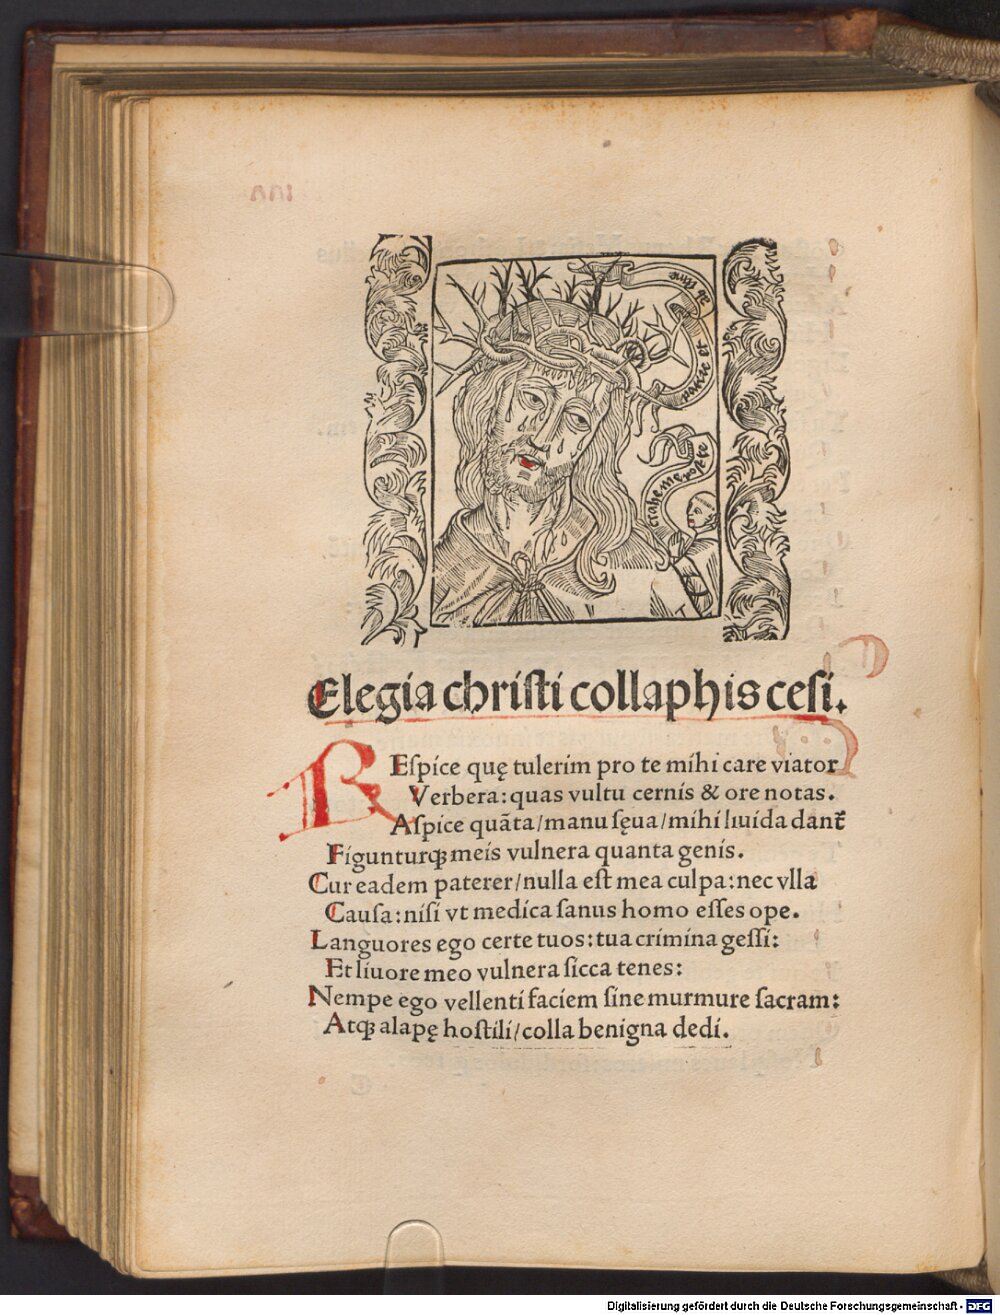 trahe me post te
Elegia christi collaphis cesi.
REspice quę tulerim pro te mihi care viator
Verbera: quas vultu cernis & ore notas.
Aspice quāta/manu sęua/mihi liuida dant̄
Figunturqꝫ meis vulnera quanta genis.
Cur eadem paterer/nulla est mea culpa: nec vlla
Causa: nisi vt medica sanus homo esses ope.
Languores ego certe tuos: tua crimina gessi:
Et liuore meo vulnera sicca tenes:
Nempe ego vellenti faciem sine murmure sacram:
Atqꝫ alapę hostili/colla benigna dedi.
Digitalisierung gefördert durch die Deutsche Forschungsgemeinschaft - DFG